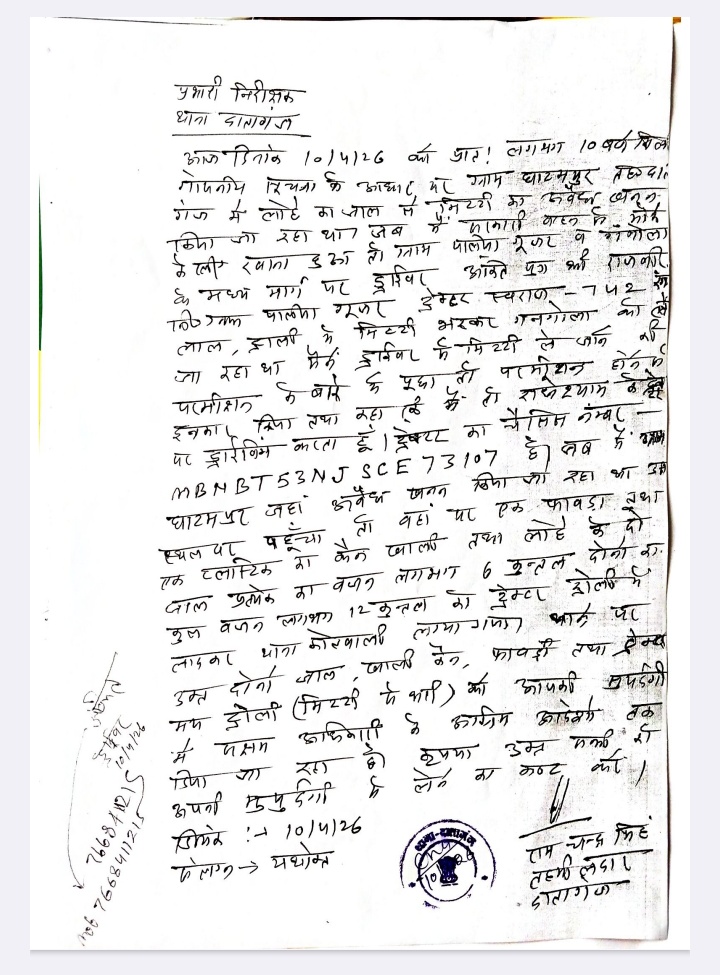 प्रभारी निरीक्षक
थाना दातागंज
आज दिनांक 10/4/26 को प्रात: लगभग 10 बजे मिली
गोपनीय सूचना के आधार पर ग्राम घाटमपुर तहo दाता
गंज में लोहे का जाल से मिट्टी का अवैध खनन
किया जा रहा था। जब मैं सरकारी वाहन से मौके
के लिए रवाना हुआ तो ग्राम पालिया गूजर व
के मध्य मार्ग पर ड्राईवर अंकित पुत्र श्री राजवीर
नि0 ग्राम पालिया गूजर ट्रैक्टर स्वराज - 742 रंग
लाल, ट्राली में मिट्टी भरकर गनगोला को
जा रहा था मैंने ड्राईवर से मिट्टी ले जाने की
परमीशन के बारे में पूछा तो परमीशन होने से
इनकार किया तथा कहा कि मैं तो राधेश्याम के
पर ड्राईविंग करता हूँ। ट्रैक्टर का चैसिस नम्बर -
MBNBT53NJ SCE 73107 है। जब मैं ग्राम
घाटमपुर जहां अवैध खनन किया जा रहा था उस
स्थल पर पहुँचा तो वहां पर एक फावडा तथा
एक प्लास्टिक का कैन खाली तथा लोहे के दो
जाल प्रत्येक का वजन लगभग 6 कुन्तल दोनों का
कुल वजन लगभग 12 कुन्तल को ट्रैक्टर ट्रोली में
लादकर थाना कोतवाली लाया गया। थाने पर
उक्त दोनों जाल, खाली कैन, फावडा तथा ट्रैक्टर
मय ट्रोली (मिट्टी से भरी) को आपकी सुपुर्दगी
में सक्षम अधिकारी के अग्रिम आदेशों तक
दिया जा रहा है। कृपया उक्त सभी को
अपनी सुपुर्दगी में लेने का कष्ट करें।
दिनांक :- 10/4/26
संलग्न → यथोक्त
राम चन्द्र सिंह
तहसीलदार
दातागंज
थाना-दातागंज
अंकित
ड्राईवर
10/4/26
7668411215
mob 7668411215